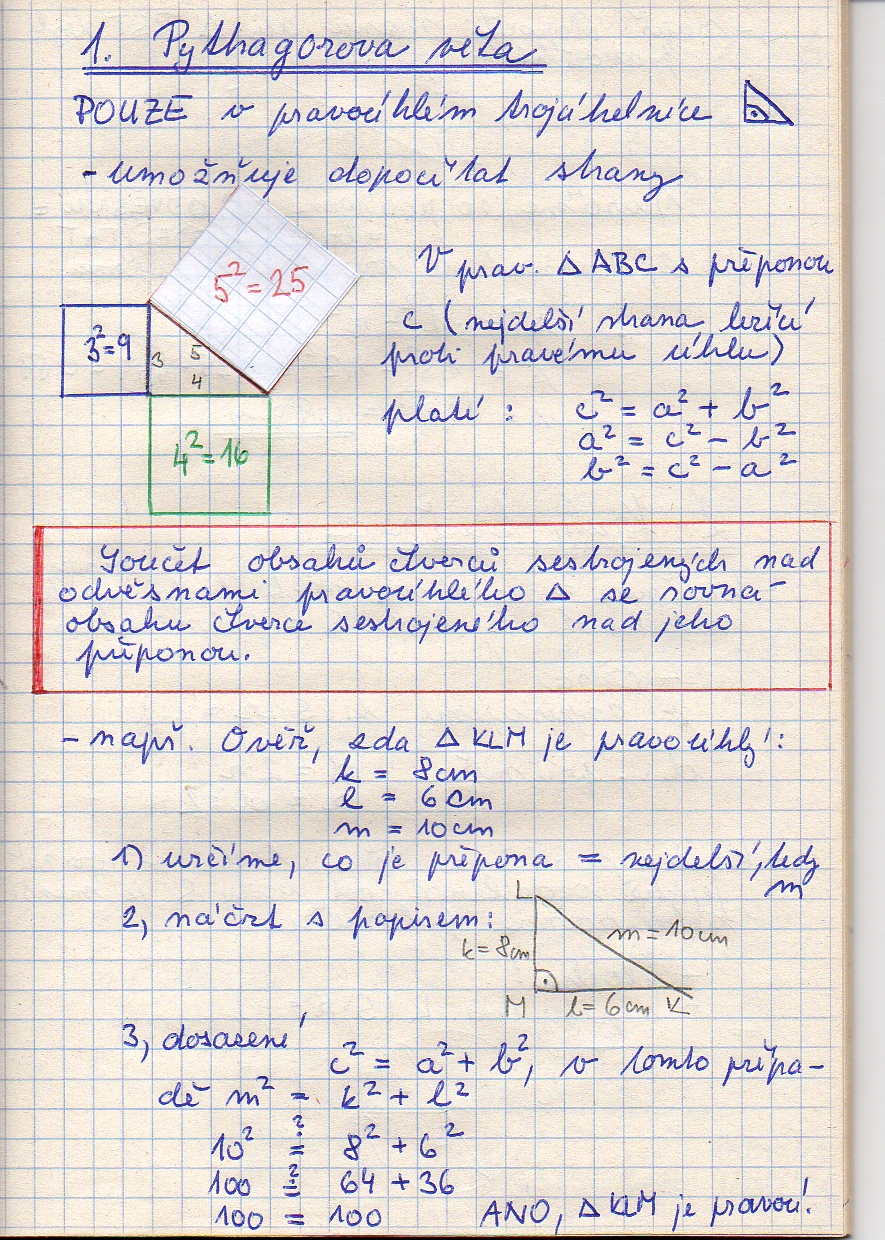 1. Pythagorova věta
POUZE v pravoúhlém trojúhelníce
- umožňuje dopočítat strany
5² = 25
3² = 9
3
5
4
4² = 16
V prav. △ ABC s přeponou
c (nejdelší strana ležící
proti pravému úhlu)
platí : c² = a² + b²
a² = c² - b²
b² = c² - a²
Součet obsahů čtverců sestrojených nad
odvěsnami pravoúhlého △ se rovná
obsahu čtverce sestrojeného nad jeho
přeponou.
- např. Ověř, zda △ KLM je pravoúhlý:
k = 8cm
l = 6cm
m = 10cm
1) určíme, co je přepona = nejdelší, tedy
m
2, náčrt s popisem:
L
k = 8cm
m = 10cm
M
l = 6cm
K
3, dosazení
c² = a² + b², v tomto přípa-
dě m² = k² + l²
10² ≟ 8² + 6²
100 ≟ 64 + 36
100 = 100 ANO, △ KLM je pravoú.